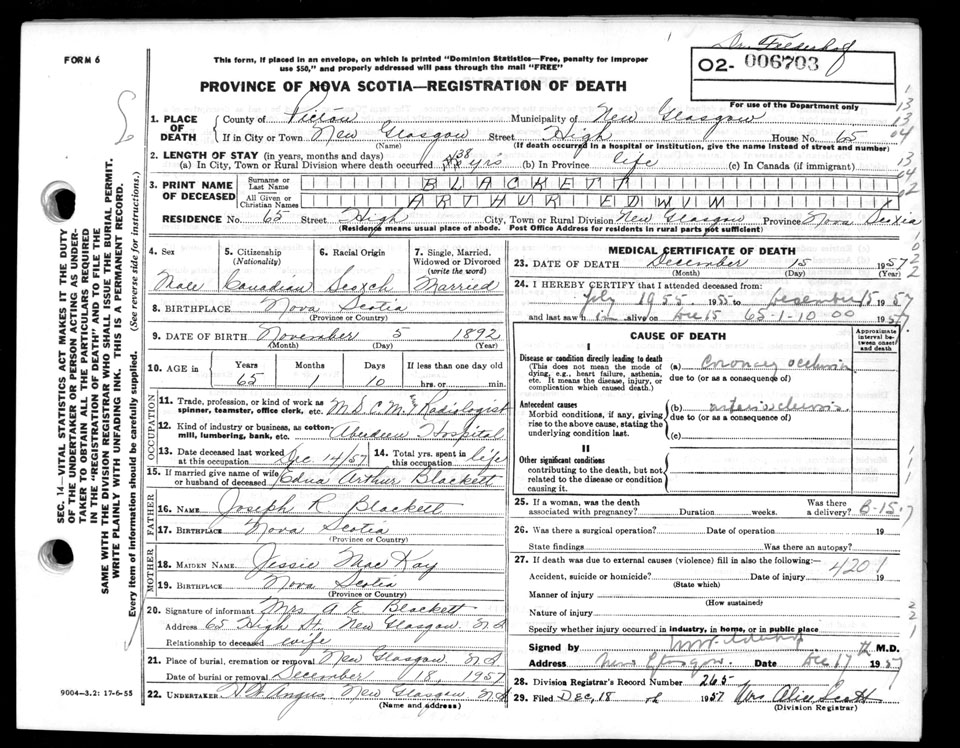 Dr. Fredenhof
FORM 6
This form, if placed in an envelope, on which is printed "Dominion Statistics—Free, penalty for improper
use $50," and properly addressed will pass through the mail "FREE"
02- 006703
PROVINCE OF NOVA SCOTIA—REGISTRATION OF DEATH
For use of the Department only
1. PLACE OF DEATH
County of Pictou Municipality of New Glasgow
If in City or Town New Glasgow Street High House No. 65
(Name) (If death occurred in a hospital or institution, give the name instead of street and number)
2. LENGTH OF STAY (in years, months and days)
(a) In City, Town or Rural Division where death occurred 38 yrs (b) In Province life (c) In Canada (if immigrant)
3. PRINT NAME OF DECEASED
Surname or Last Name BLACKETT
All Given or Christian Names ARTHUR EDWIN
RESIDENCE No. 65 Street High City, Town or Rural Division New Glasgow Province Nova Scotia
(Residence means usual place of abode. Post Office Address for residents in rural parts not sufficient)
4. Sex
Male
5. Citizenship
(Nationality)
Canadian
6. Racial Origin
Scotch
7. Single, Married,
Widowed or Divorced
(write the word)
Married
8. BIRTHPLACE Nova Scotia
(Province or Country)
9. DATE OF BIRTH November 5 1892
(Month) (Day) (Year)
10. AGE in
Years Months Days If less than one day old
65 1 10 hrs. or min.
OCCUPATION
11. Trade, profession, or kind of work as
spinner, teamster, office clerk, etc. M.D.C.M. Radiologist
12. Kind of industry or business, as cotton-
mill, lumbering, bank, etc. Aberdeen Hospital
13. Date deceased last worked
at this occupation Dec. 14/57
14. Total yrs. spent in
this occupation life
15. If married give name of wife
or husband of deceased Edna Arthur Blackett
FATHER
16. NAME Joseph R Blackett
17. BIRTHPLACE Nova Scotia
(Province or Country)
MOTHER
18. MAIDEN NAME Jessie MacKay
19. BIRTHPLACE Nova Scotia
(Province or Country)
20. Signature of informant Mrs A. E. Blackett
Address 65 High St. New Glasgow N.S
Relationship to deceased wife
21. Place of burial, cremation or removal New Glasgow N.S
Date of burial or removal December 18, 1957
22. UNDERTAKER H W Angus New Glasgow N.S
(Name and address)
MEDICAL CERTIFICATE OF DEATH
23. DATE OF DEATH December 15 1957
(Month) (Day) (Year)
24. I HEREBY CERTIFY that I attended deceased from:
July 1955 to December 15 1957
and last saw him alive on Dec 15 65-1-10 00 1957
CAUSE OF DEATH
Approximate interval between onset and death
I
Disease or condition directly leading to death
(This does not mean the mode of
dying, e.g., heart failure, asthenia,
etc. It means the disease, injury, or
complication which caused death.)
(a) Coronary occlusion
due to (or as a consequence of)
Antecedent causes
Morbid conditions, if any, giving
rise to the above cause, stating the
underlying condition last.
(b) arteriosclerosis
due to (or as a consequence of)
(c)
II
Other significant conditions
contributing to the death, but not
related to the disease or condition
causing it.
25. If a woman, was the death
associated with pregnancy? Duration weeks. Was there
a delivery? 8-15-7
26. Was there a surgical operation? Date of operation 19
State findings Was there an autopsy?
27. If death was due to external causes (violence) fill in also the following:— 4201
Accident, suicide or homicide? Date of injury 19
(State which)
Manner of injury
(How sustained)
Nature of injury
Specify whether injury occurred in industry, in home, or in public place
Signed by M.D.
Address New Glasgow Date Dec 17 1957
28. Division Registrar's Record Number 265
29. Filed Dec, 18 1957 Mrs. Alice Scott
(Division Registrar)
SEC. 14—VITAL STATISTICS ACT MAKES IT THE DUTY
OF THE UNDERTAKER OR PERSON ACTING AS UNDER-
TAKER TO OBTAIN ALL THE PARTICULARS REQUIRED
IN THE "REGISTRATION OF DEATH" AND TO FILE THE
SAME WITH THE DIVISION REGISTRAR WHO SHALL ISSUE THE BURIAL PERMIT.
WRITE PLAINLY WITH UNFADING INK. THIS IS A PERMANENT RECORD.
Every item of information should be carefully supplied. (See reverse side for instructions.)
9004-3.2: 17-6-55